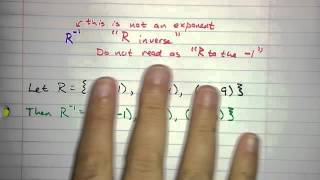 this is not an exponent
R⁻¹ "R inverse"
Do not read as "R to the -1"
Let R = {( 1), ( ), ( 9)}
Then R⁻¹ = { -1), ), ( )}